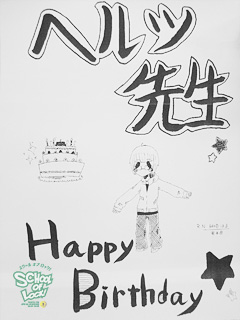 ヘルツ
先生
Happy
SCHOOL
OF
LOCK!
Birthday